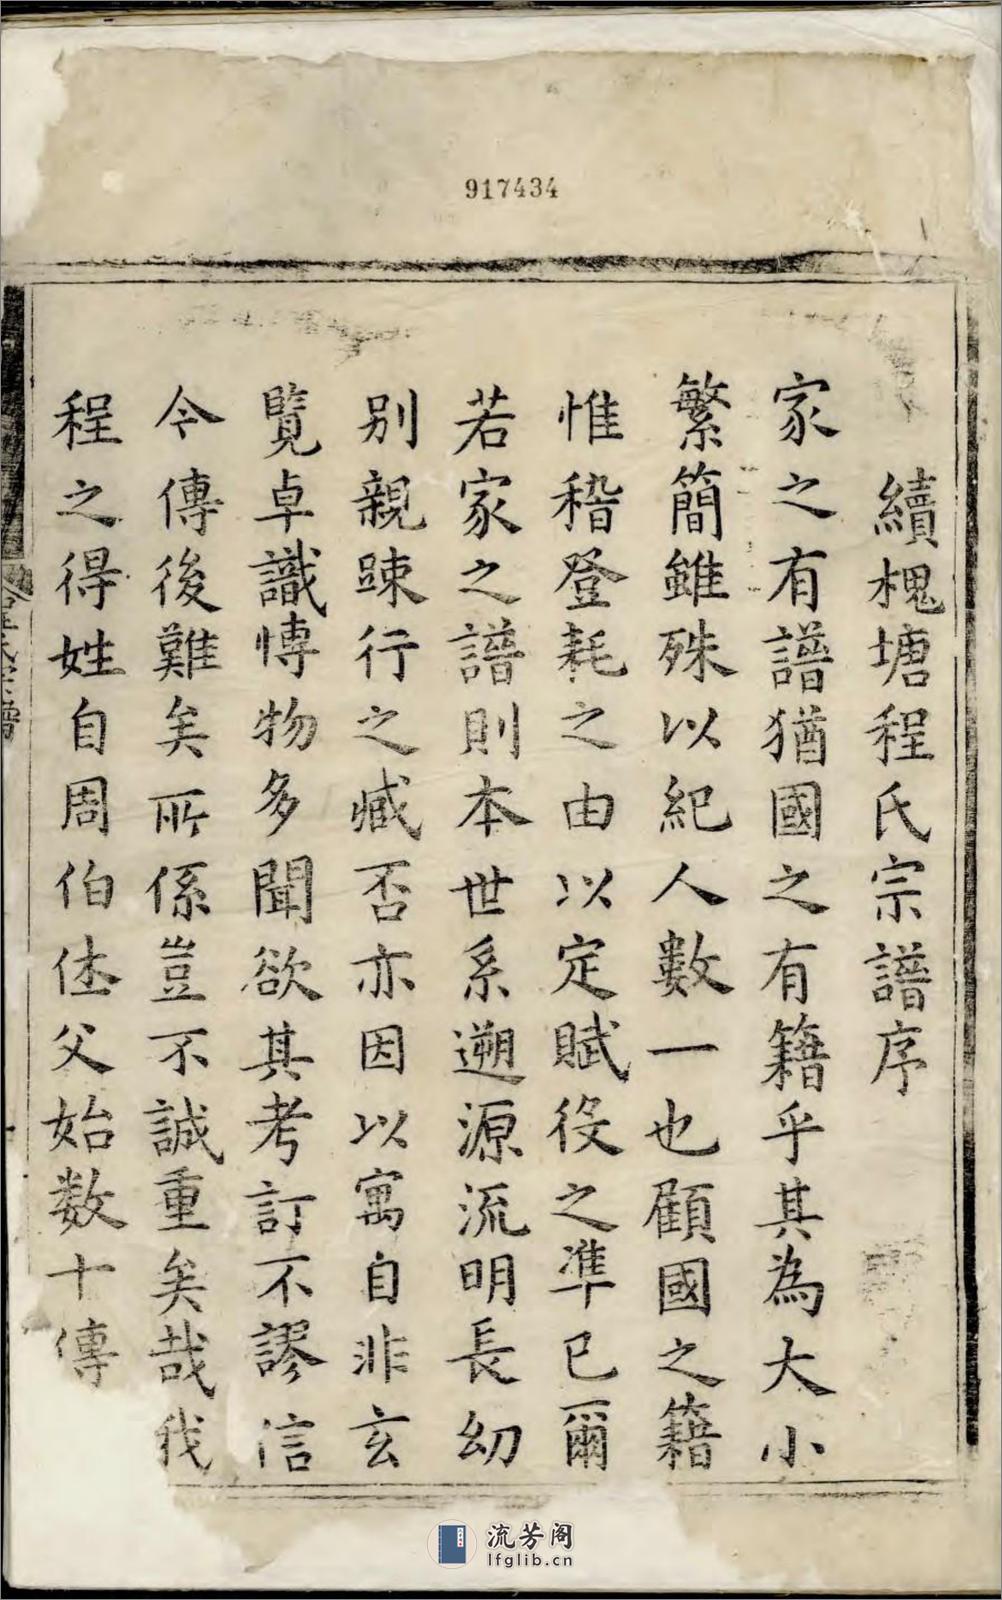 917434
續槐塘程氏宗譜序
家之有譜猶國之有籍乎其為大小
繁簡雖殊以紀人數一也顧國之籍
惟稽登耗之由以定賦役之準已爾
若家之譜則本世系遡源流明長幼
别親踈行之臧否亦因以寓自非玄
覽卓識愽物多聞欲其考訂不謬信
今傳後難矣所係豈不誠重矣哉我
程之得姓自周伯休父始数十傳
程氏宗譜
流芳阁
lfglib.cn